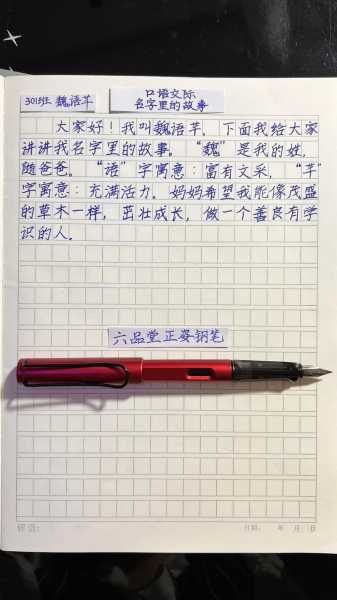 301班 魏语芊
口语交际
名字里的故事
大家好！我叫魏语芊，下面我给大家
讲讲我名字里的故事。“魏”是我的姓，
随爸爸。“语”字寓意：富有文采，“芊”
字寓意：充满活力。妈妈希望我能像茂盛
的草木一样，茁壮成长，做一个善良有学
识的人。
六品堂正姿钢笔
评语：
日期： 年 月 日